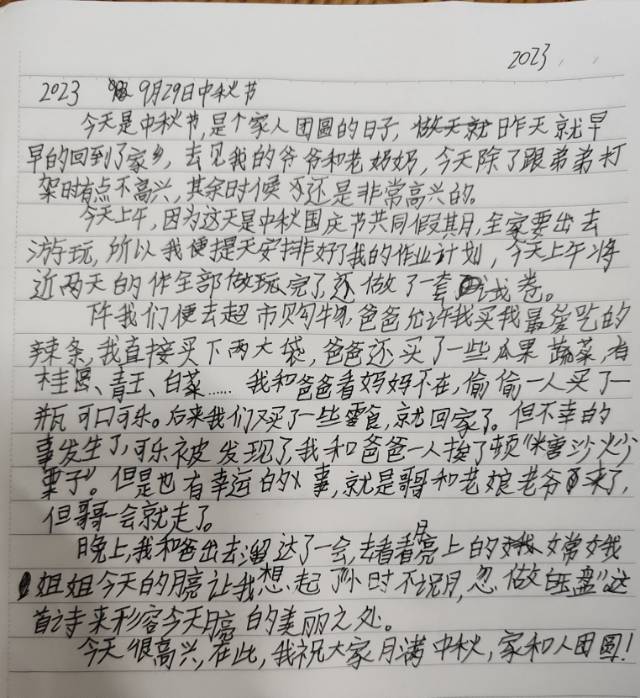 2023
2023 9月29日中秋节
今天是中秋节,是个家人团圆的日子,昨天就早
早的回到了家乡,去见我的爷爷和老奶奶,今天除了跟弟弟打
架时有点不高兴,其余时候还是非常高兴的。
今天上午,因为这天是中秋国庆节共同假其月,全家要出去
游玩,所以我便提天安排好了我的作业计划,今天上午将
近两天的作全部做玩完了还做了一套试卷。
下午我们便去超市购物,爸爸允许我买我最爱吃的
辣条,我直接买下两大袋,爸爸还买了一些瓜果蔬菜,有
桂圆、青王、白菜……我和爸爸看妈妈不在,偷偷一人买了一
瓶可口可乐。后来我们又买了一些零食,就回家了。但不幸的
事发生了,可乐被发现了,我和爸爸一人挨了顿"糖沙火少
栗子"。但是也有幸运的事,就是哥哥和老娘老爷来了,
但哥哥一会就走了。
晚上,我和爸出去溜达了一会,去看看月亮上的嫦娥
姐姐今天的月亮让我想起了小时不识月,忽做白玉盘"这
首诗来形容今天月亮的美丽之处。
今天很高兴,在此,我祝大家月满中秋,家和人团圆!